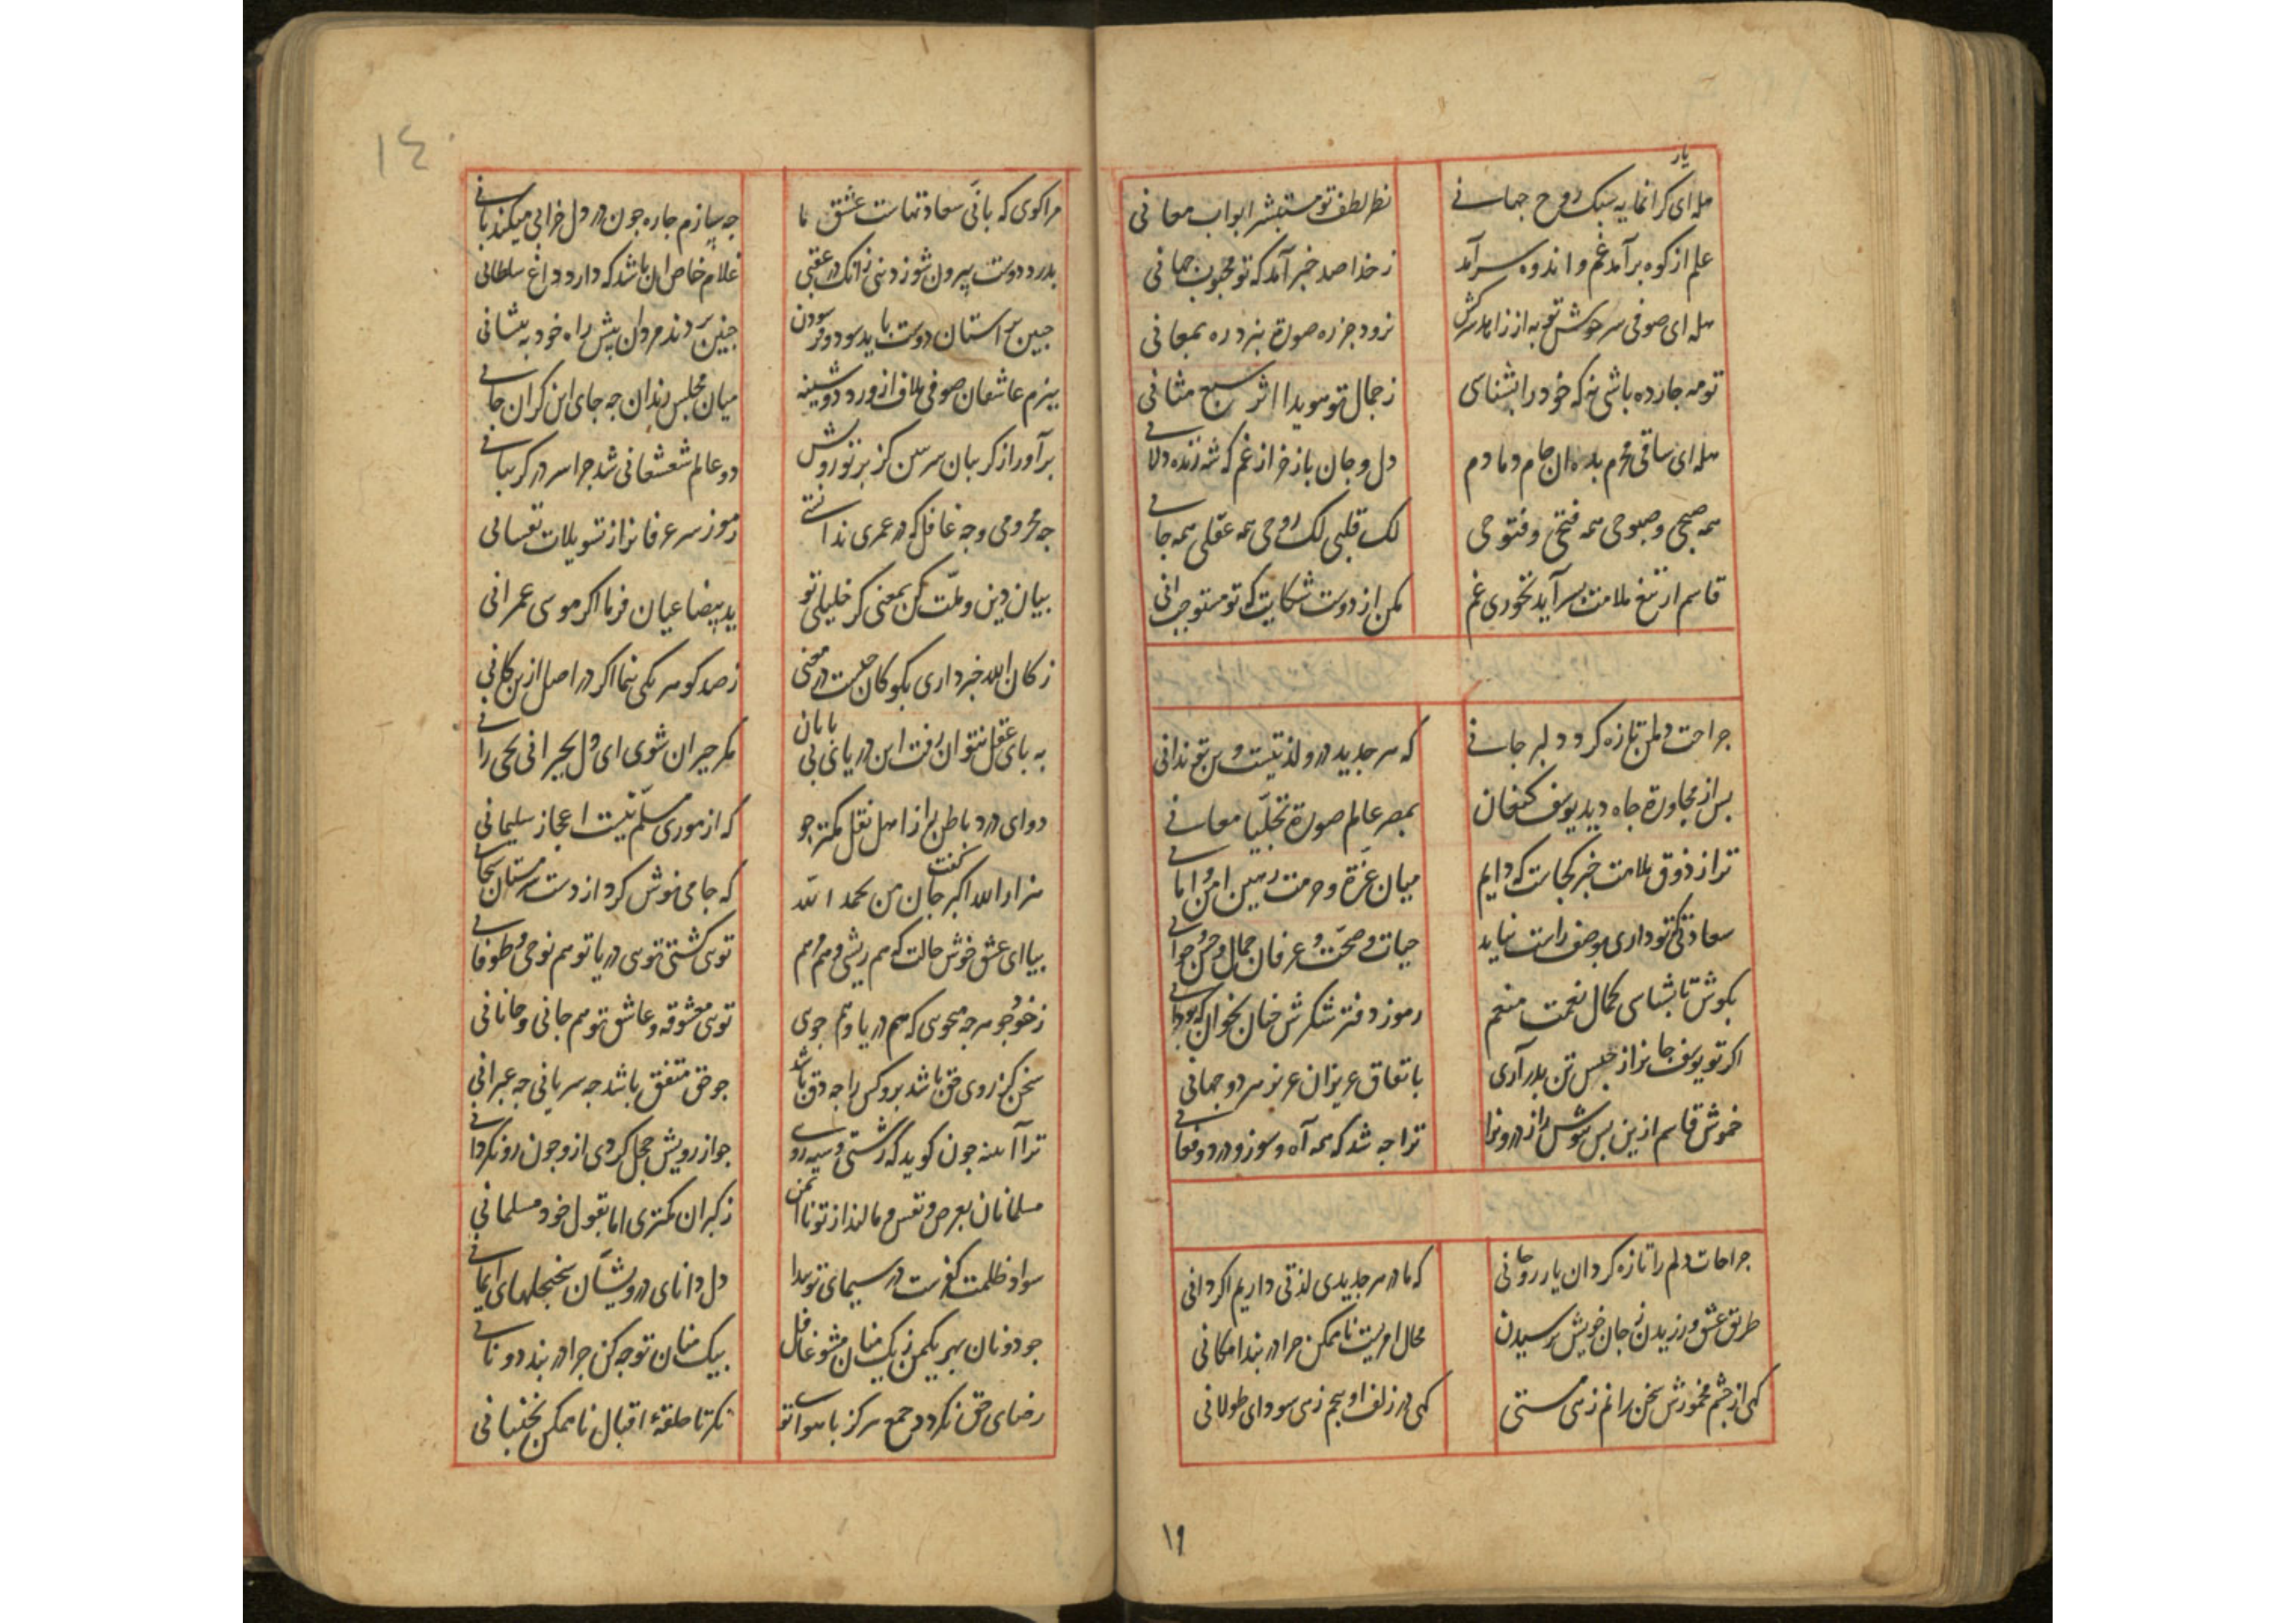 یار
هله ای کرانمایه سبک روح جهانی
نظر لطف تو مستبشر ابواب معانی
علم از کوه برآمد غم و اندوه سرآمد
ز خدا صد خبر آمد که تو محبوب جهانی
هله ای صوفی سرخوش تو به از زاهد سرکش
نرود جز ره صورة نبرد ره بمعانی
تو مه جارده باشی نه که خود را بشناسی
ز جمال تو هویدا اثر سبع مثانی
هله ای ساقی محرم بده ان جام دمادم
دل و جان باز خر از غم که شه زنده دلانی
همه صبحی و صبوحی همه فتحی و فتوحی
لک قلبی لک روحی همه عقلی همه جانی
قاسم ار تیغ ملامت بسر آید نخوری غم
مکن از دوست شکایت که تو مستوجب انی
جراحت دلمن تازه کرد دلبر جانی
که هر جدید در و لذتیست و من تو ندانی
بس از مجاورة جاه دید یوسف کنعان
بمصر عالم صورة تجلیا معانی
ترا ز ذوق ملامت خبر کجاست که دایم
میان عزة و حرمت رهین امن و امانی
سعادتی که تو داری بوصف راست نیاید
حیات و صحت و عرفان جمال و حسن جوانی
بکوش تا بشناسی کمال نعمت منعم
رموز دفتر شکرش جنان بخوان که بودانی
اکر تو یوسف جانرا ز حبس تن بدر آری
باتفاق عزیزان عزیز هر دو جهانی
خموش قاسم ازین بس بپوش راز درونرا
ترا جه شد که همه آه و سوز و درد و فغانی
جراحات دلم را تازه کرد ان یار روحانی
که ما در هر جدیدی لذتی داریم اکر دانی
طریق عشق ورزیدن ز جان خویش ترسیدن
محال امریست ناممکن جرا در بند امکانی
کهی از جشم مخمورش سخن رانم زهی مستی
کهی در زلف او بیجم زهی سودای طولانی
۱۹
۱٤۰
مرا کوی که بانی سعادتهاست عشق ما
جه سازم جاره جون در دل خرابی میکند بانی
بدرد دوست بیرون شو ز دنیی زانک در عقبی
غلام خاص ان باشد که دارد داغ سلطانی
جبین بر آستان دوست باید سود و فرسودن
جنین بردند مردان بیش راه خود به بیشانی
ببزم عاشقان صوفی ملاف از ورد دوشینه
میان مجلس رندان جه جای این کران جانی
برآور از کریبان سر سخن کز برتو رویش
دو عالم شعشعانی شد جرا سر در کریبانی
جه محرومی و جه غافل که در عمری ندانستی
رموز سر عرفانرا ز تسویلات نفسانی
بیان دین و ملت کن بمعنی کر خلیلی تو
ید بیضا عیان فرما اکر موسی عمرانی
ز کان الله خبر داری بکو کان جیست در معنی
ز صد کوهر یکی بنما اکر در اصل ازین کانی
به بای عقل نتوان رفت این دریای بی بایان
مکر حیران شوی ای دل بحیرانی بحیرانی
دوای درد باطن را ز اهل نقل کمتر جو
که از موری مسلم نیست اعجاز سلیمانی
هزار الله اکبر کفت جان من بحمد الله
که جامی نوش کرد از دست مستان سبحانی
بیا ای عشق خوش حالت که هم ریشی و هم مرهم
توی کشتی توی دریا تو هم نوحی و طوفانی
ز خود جو هرجه میجوی که هم دریا و هم جوی
توی معشوقه و عاشق تو هم جانی و جانانی
سخن کز روی حق باشد برو کس را جه دق باشد
جو حق متفق باشد جه سریانی جه عبرانی
ترا آینه جون کوید که زشتی و سیه رویی
جو از رویش خجل کردی ازو جون رو نکردانی
مسلمانان بعرض و نفس و مالند از تو نا ایمن
ز کبران کمتری اما بقول خود مسلمانی
سواد ظلمت کفرست در سیمای تو بیدا
دل دانای درویشان سجنجلهای ایمانی
جو دونان بهر یکمن زیک منان مشو غافل
بیک منان توجه کن جرا در بند دو نانی
رضای حق نکردد جمع هرکز با هوا تو
مکر تا حلقهٔ اقبال ناممکن بجنبانی